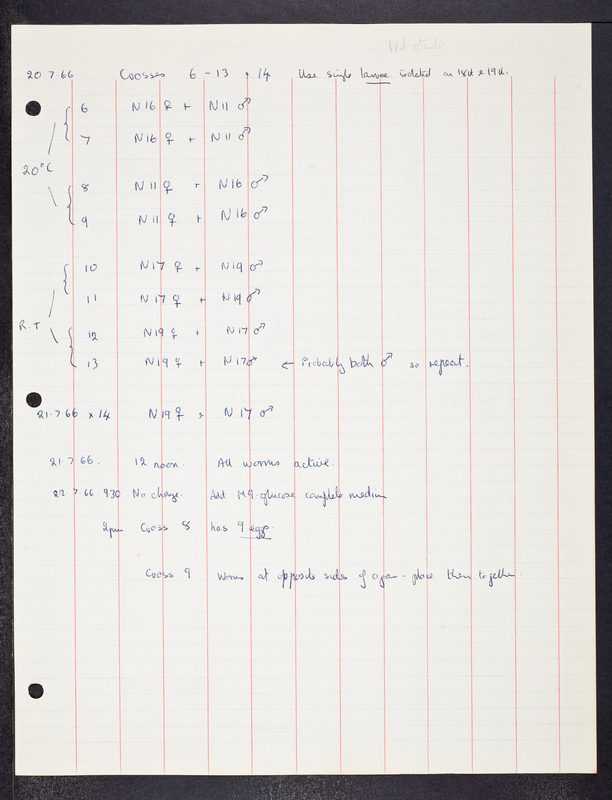 20.7.66 Crosses 6-13 + 14 Use single larvae isolated on 18th & 19th.
6 N16 ♀ + N11 ♂
7 N16 ♀ + N11 ♂
20°C
8 N11 ♀ + N16 ♂
9 N11 ♀ + N16 ♂
10 N17 ♀ + N19 ♂
11 N17 ♀ + N19 ♂
R.T
12 N19 ♀ + N17 ♂
13 N19 ♀ + N17♂ ← Probably both ♂ so repeat.
21.7.66 x 14 N19 ♀ x N17 ♂
21.7.66. 12 noon. All worms active.
22.7.66. 930 No change. Add M9 glucose complete medium
2pm Cross 8 has 9 eggs.
Cross 9 Worms at opposite sides of agar - place them together.